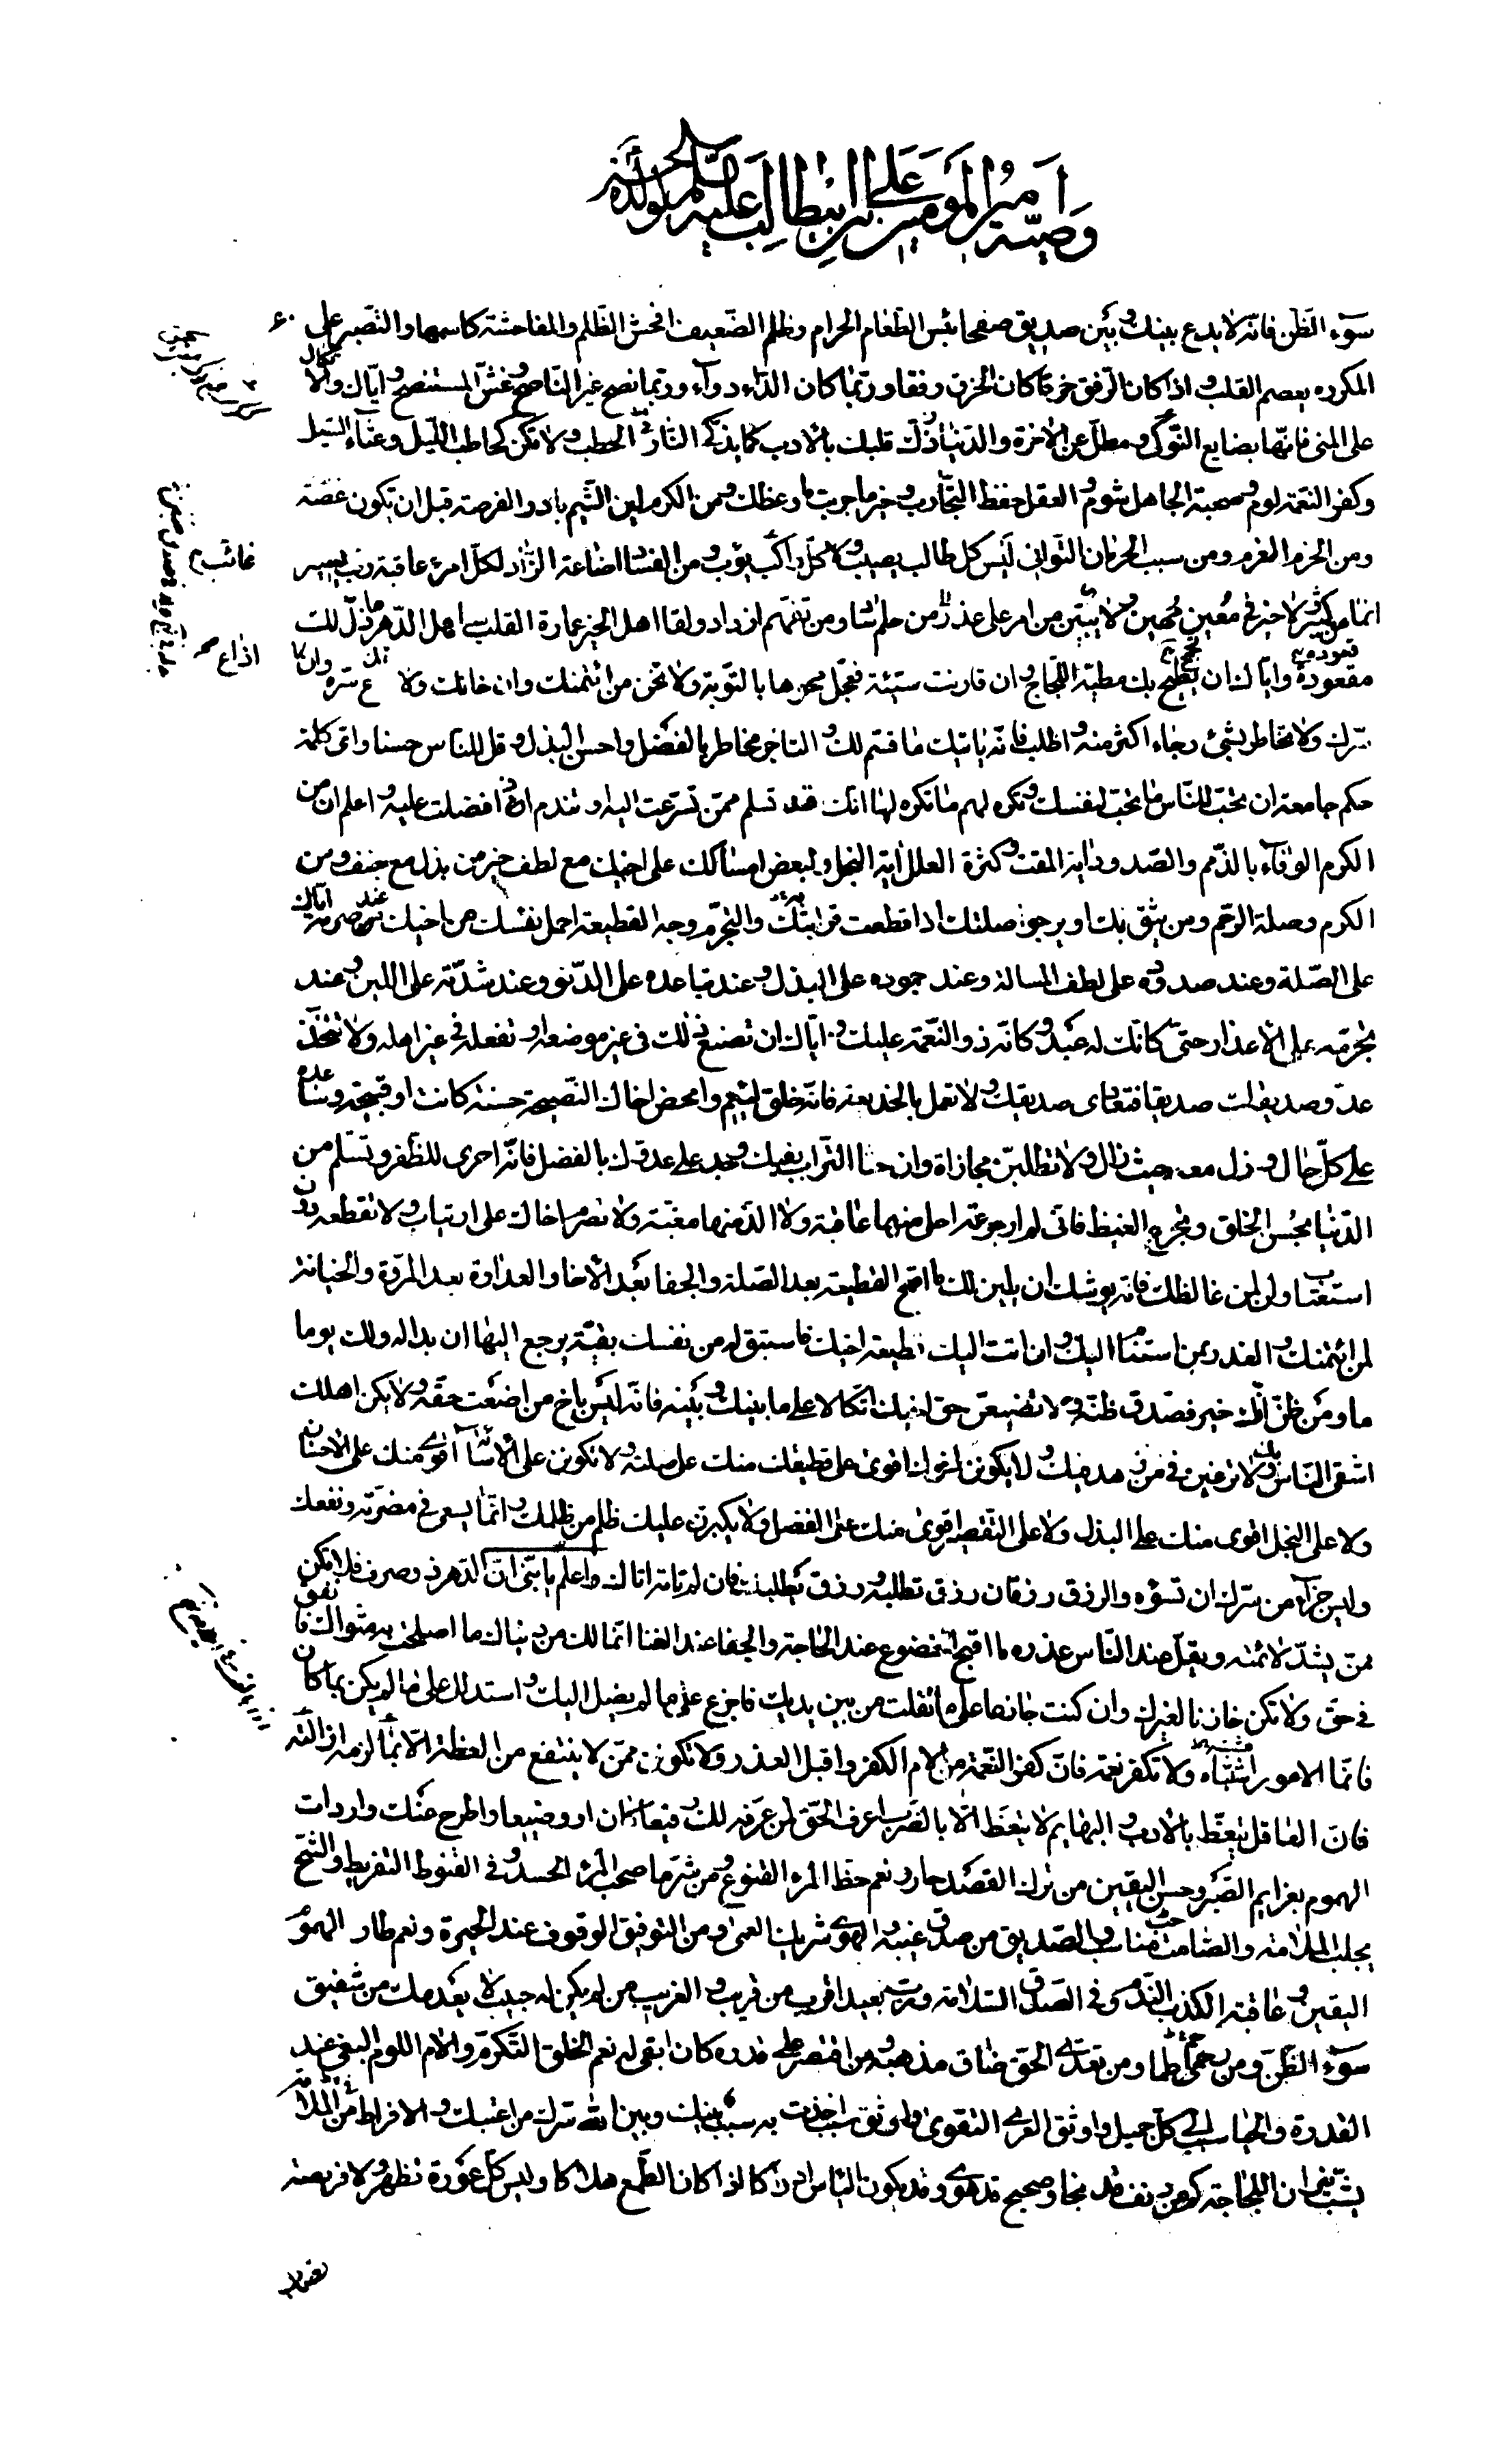 وصية أمير المؤمنين علي بن ابيطالب عليه السلم لولده الحسن
سوء الظن فانه لا يدع بينك وبين صديق صفحا بئس الطعام الحرام وظلم الضعيف افحش الظلم والفاحشة كاسمها والتصبر على
المكروه يعصم القلب و اذا كان الرفق خرقا كان الخرق رفقا وربما كان الداء دواء وربما نصح غير الناصح وغش المستنصح و اياك والاتكال
على المنى فانها بضايع النوكى و مطل عن الاخرة والدنيا ذك قلبك بالادب كما يذكى النار الحطب ولا تكن كحاطب الليل وغثاء السيل
وكفر النعمة لوم و صحبة الجاهل شوم و العقل حفظ التجارب و خير ما جربت ما وعظك ومن الكرم لين الشيم بادر الفرصة قبل ان يكون غصة
ومن الحزم العزم ومن سبب الحرمان التوانى ليس كل طالب يصيب ولا كل راكب يؤب و من الفساد اضاعة الزاد لكل امرئ عاقبة رب يسير
انما من كثير لا خير فى معين مهين و لا يبيتن من امر على عذر من حلم ساد ومن تفهم ازداد ولقا اهل الخير عمارة القلب ساهل الدهر ما ذل لك
مقعوده واياك ان تطيح بك مطية اللجاج و ان قارفت سيئة فعجل محوها بالتوبة ولا تخن من ائتمنك وان خانك ولا تذع سره وان اذاع
سرك ولا تخاطر بشئ رجاء اكثر منه و اطلب فانه ياتيك ما قسم لك و التاجر مخاطر بالفضل واحسن البذل و قل للناس حسنا واى كلمة
حكم جامعة ان تحب للناس ما تحب لنفسك وتكره لهم ما تكره لها انك قد تسلم ممن تسرعت اليه و تندم اذا افضلت عليه و اعلم ان من
الكرم الوفاء بالذمم والصدود اية المقت و كثرة العلل اية البخل و لبعض امساكك على اخيك مع لطف خير من بذل مع حيف و من
الكرم وصلة الرحم ومن يثق بك او يرجو صلتك اذا قطعت قرابتك والتجرم وجه القطيعة احمل نفسك من اخيك عند صرمه اياك
على الصلة وعند صدوده على لطف المسالة وعند جموده على البذل و عند تباعده على الدنو وعند شدته على اللين وعند
تجرمه على الاعذار حتى كانك له عبد و كانه ذو النعمة عليك و اياك ان تصنع ذلك فى غير موضعه او تفعله فى غير اهله ولا تتخذن
عدو صديقك صديقا فتعادى صديقك و لا تعمل بالخديعة فانه خلق لئيم وامحض اخاك النصيحة حسنة كانت او قبيحة وساعده
على كل حال و زل معه حيث زال و لا تطلبن مجازاة وان حثا التراب بفيك وجد على عدوك بالفضل فانه احرى للظفر وتسلم من
الدنيا بحسن الخلق و تجرع الغيظ فانى لم ار جرعة احلى منها عاقبة ولا الذ منها مغبة ولا تصرم اخاك على ارتياب و لا تقطعه دون
استعتاب ولن لمن غالظك فانه يوشك ان يلين لك ما اقبح القطيعة بعد الصلة والجفا بعد الاخا و العداوة بعد المودة والخيانة
لمن ائتمنك و الغدر بمن استنام اليك و ان انت قطيعة اخيك فاستبق له من نفسك بقية يرجع اليها ان بدا له ولك يوما
ما ومن ظن بك خير فصدق ظنه و لا تضيعن حق اخيك اتكالا على ما بينك و بينه فانه ليس باخ من اضعت حقه و لا يكن اهلك
اشقى الناس بك و لا ترغبن فى من زهد فيك و لا يكونن اخوك اقوى على قطيعتك منك على صلته و لا تكونن على الاساءة اقوى منك على الاحسان
ولا على البخل اقوى منك على البذل ولا على التقصير اقوى منك على الفضل ولا يكبرن عليك ظلم من ظلمك و انما يسعى فى مضرته ونفعك
وليس جزاء من سرك ان تسؤه والرزق رزقان رزق تطلبه و رزق يطلبك فان لم تاته اتاك واعلم يا بنى ان الدهر ذو صرف فلا تكن
ممن يشتد لائمته ويقل عند الناس عذره ما اقبح الخضوع عند الحاجة والجفا عند الغنا انما لك من دنياك ما اصلحت به مثواك فانفق
فى حق ولا تكن خازنا لغيرك وان كنت جازعا على ما انفلت من بين يديك فاجزع على ما لم يصل اليك و استدلل على ما لم يكن بما كان
فانما الامور اشباه ولا تكفر نعمة فان كفر النعمة من الام الكفر واقبل العذر ولا تكونن ممن لا ينتفع من العظة الا بما لزمه ازالته
فان العاقل يتعظ بالادب و البهايم لا يتعظ الا بالضرب اعرف الحق لمن عرفه لك رفيعا كان او وضيعا واطرح عنك واردات
الهموم بعزايم الصبر و حسن اليقين من ترك القصد جار و نعم حظ المرء القنوع و من شر ما صحب المرء الحسد و فى القنوط التفريط والشح
يجلب الملامة والصاحب مناسب و الصديق من صدق غيبه و الهوى شريك العمى و من التوفيق الوقوف عند الحيرة ونعم طارد الهموم
اليقين و عاقبة الكذب الندم و فى الصدق السلامة و رب بعيد اقرب من قريب و الغريب من لم يكن له حبيب لا يعدمك من شفيق
سوء الظن ومن حمى ظما ومن تعدى الحق ضاق مذهبه و من اقتصر على قدره كان ابقى له نعم الخلق التكرم و الام اللوم البغى عند
القدرة والحيا سبب الى كل جميل و اوثق العرى التقوى و اوثق سبب اخذت به سبب بينك وبين الله سرك من اعتبك و الافراط فى الملامة
يشب نيران اللجاجة كم من دنف قد نجا و صحيح قد هوى و قد يكون الياس ادراكا اذا كان الطمع هلاكا وليس كل عورة تظهر ولا فريضة